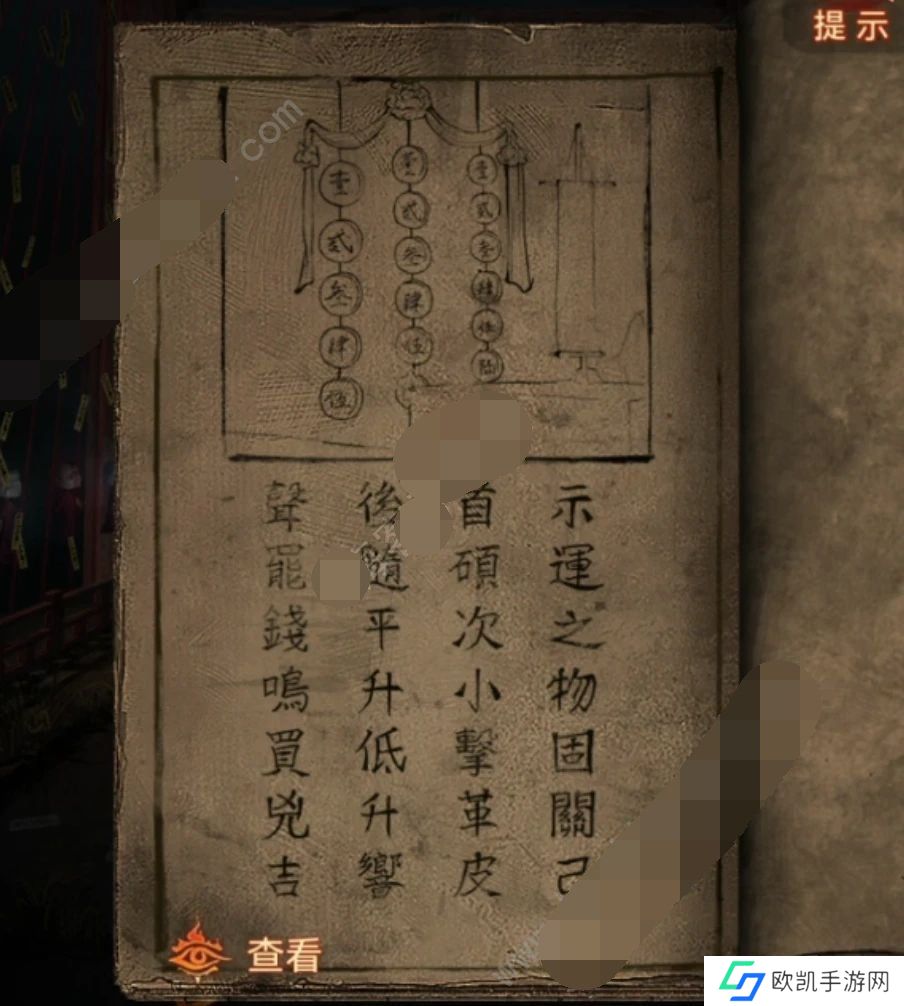 提示
壹 壹 壹
貳 貳 貳
叁 叁 叁
肆 肆 肆
伍 伍 伍
陆
示運之物固關己
首碩次小擊革皮
後隨平升低升響
聲罷錢鳴買兇吉
查看
.com
www.
欧凯手游网